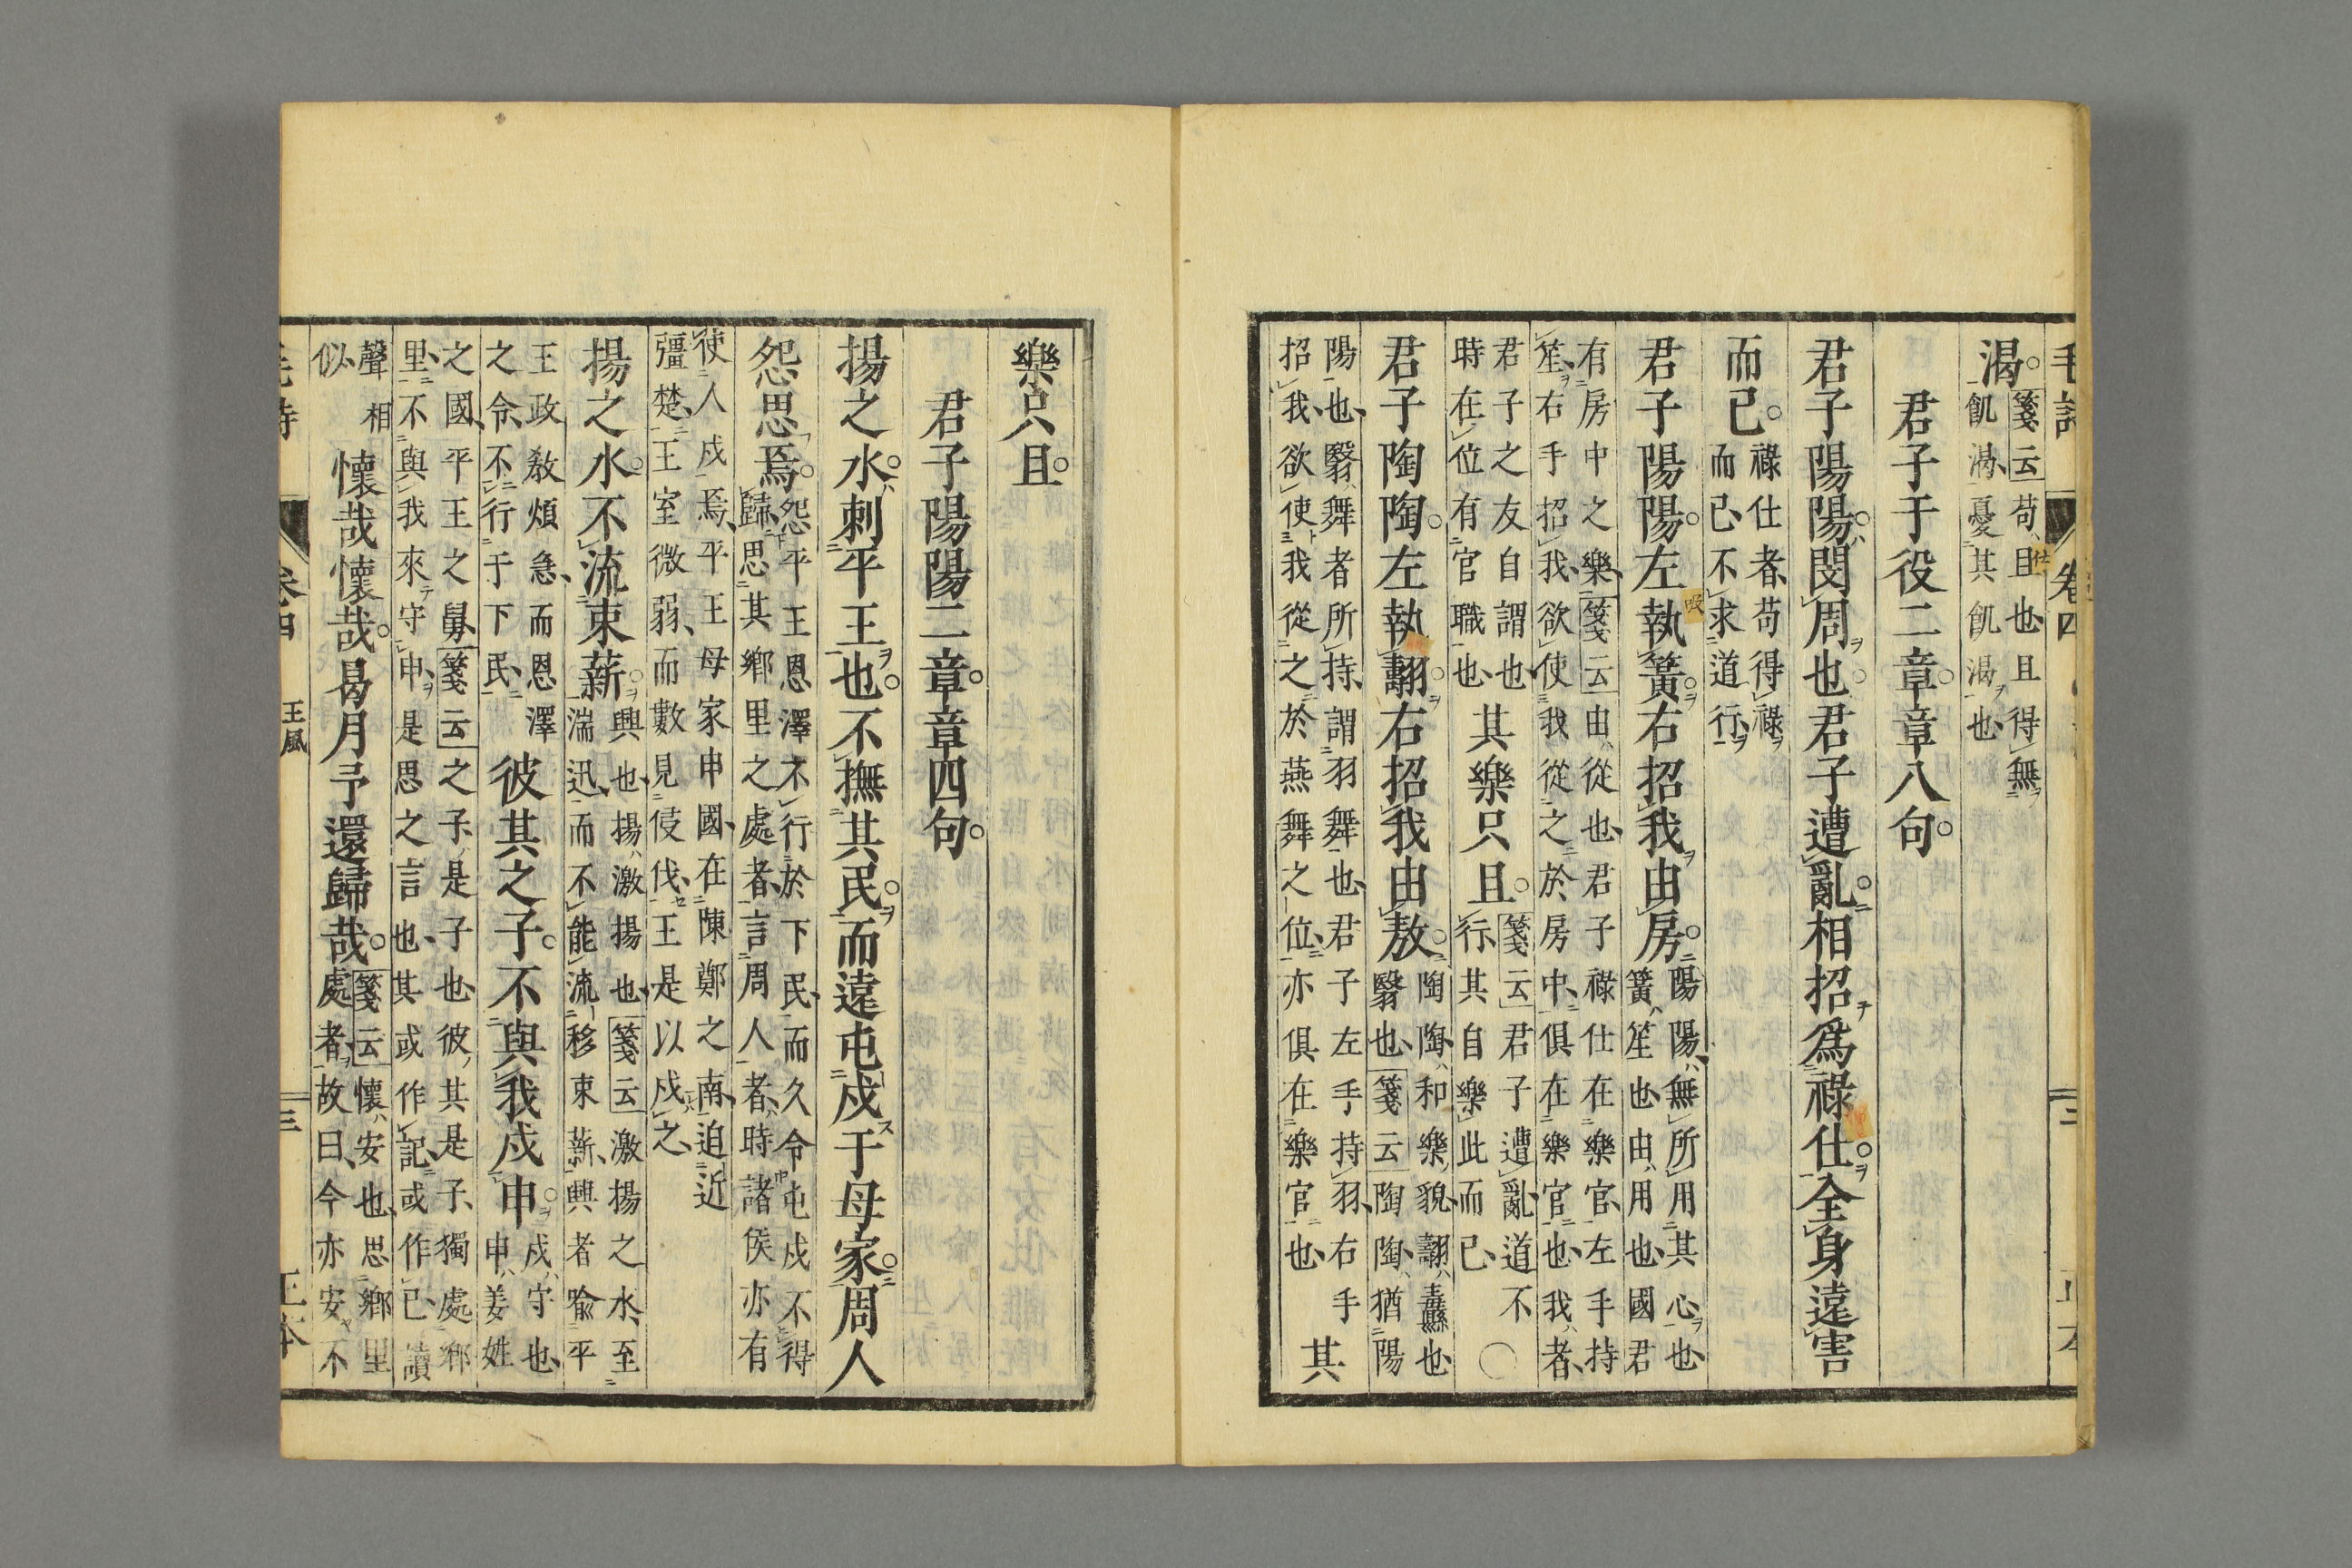 毛詩 卷四 三
渴。箋云苟、且也、且得無
飢渴、憂其飢渴也
君子于役二章。章八句。
君子陽陽。閔周也。君子遭亂。相招爲祿仕。全身遠害
而已。祿仕者、苟得祿
而已、不求道行、
君子陽陽。左執簧。右招我由房。陽陽、無所用其心也
簧、笙也、由、用也、國君
有房中之樂、箋云由、從也、君子祿仕在樂官、左手持
笙、右手招我、欲使我從之於房中、俱在樂官也、我者、
君子之友自謂也、
時在位有官職也 其樂只且。箋云君子遭亂道不
行、其自樂此而已、○
君子陶陶。左執翿。右招我由敖。陶陶、和樂貌、翿、纛也
翳也、箋云陶陶、猶陽
陽也、翳、舞者所持、謂羽舞也、君子左手持羽、右手
招我、欲使我從之於燕舞之位、亦俱在樂官也、 其
樂只且。
君子陽陽二章。章四句。
揚之水。刺平王也。不撫其民。而遠屯戍于母家。周人
怨思焉。怨平王恩澤不行於下民、而久令屯戍不得
歸、思其鄉里之處者、言周人者、時諸侯亦有
使人戍焉、平王母家申國、在陳鄭之南、迫近
彊楚、王室微弱、而數見侵伐、王是以戍之、
揚之水。不流束薪。興也、揚、激揚也、箋云激揚之水、至
湍迅、而不能流移束薪、興者喻平
王政敎煩急、而恩澤
之令、不行于下民、 彼其之子。不與我戍申。戍、守也、
申、姜姓
之國、平王之舅、箋云之子、是子也、彼、其是子、獨處鄉
里、不與我來守申、是思之言也、其或作記、或作己、讀
聲相
似 懷哉懷哉。曷月予還歸哉。箋云懷、安也、思鄉里
處者、故曰、今亦安不
王風